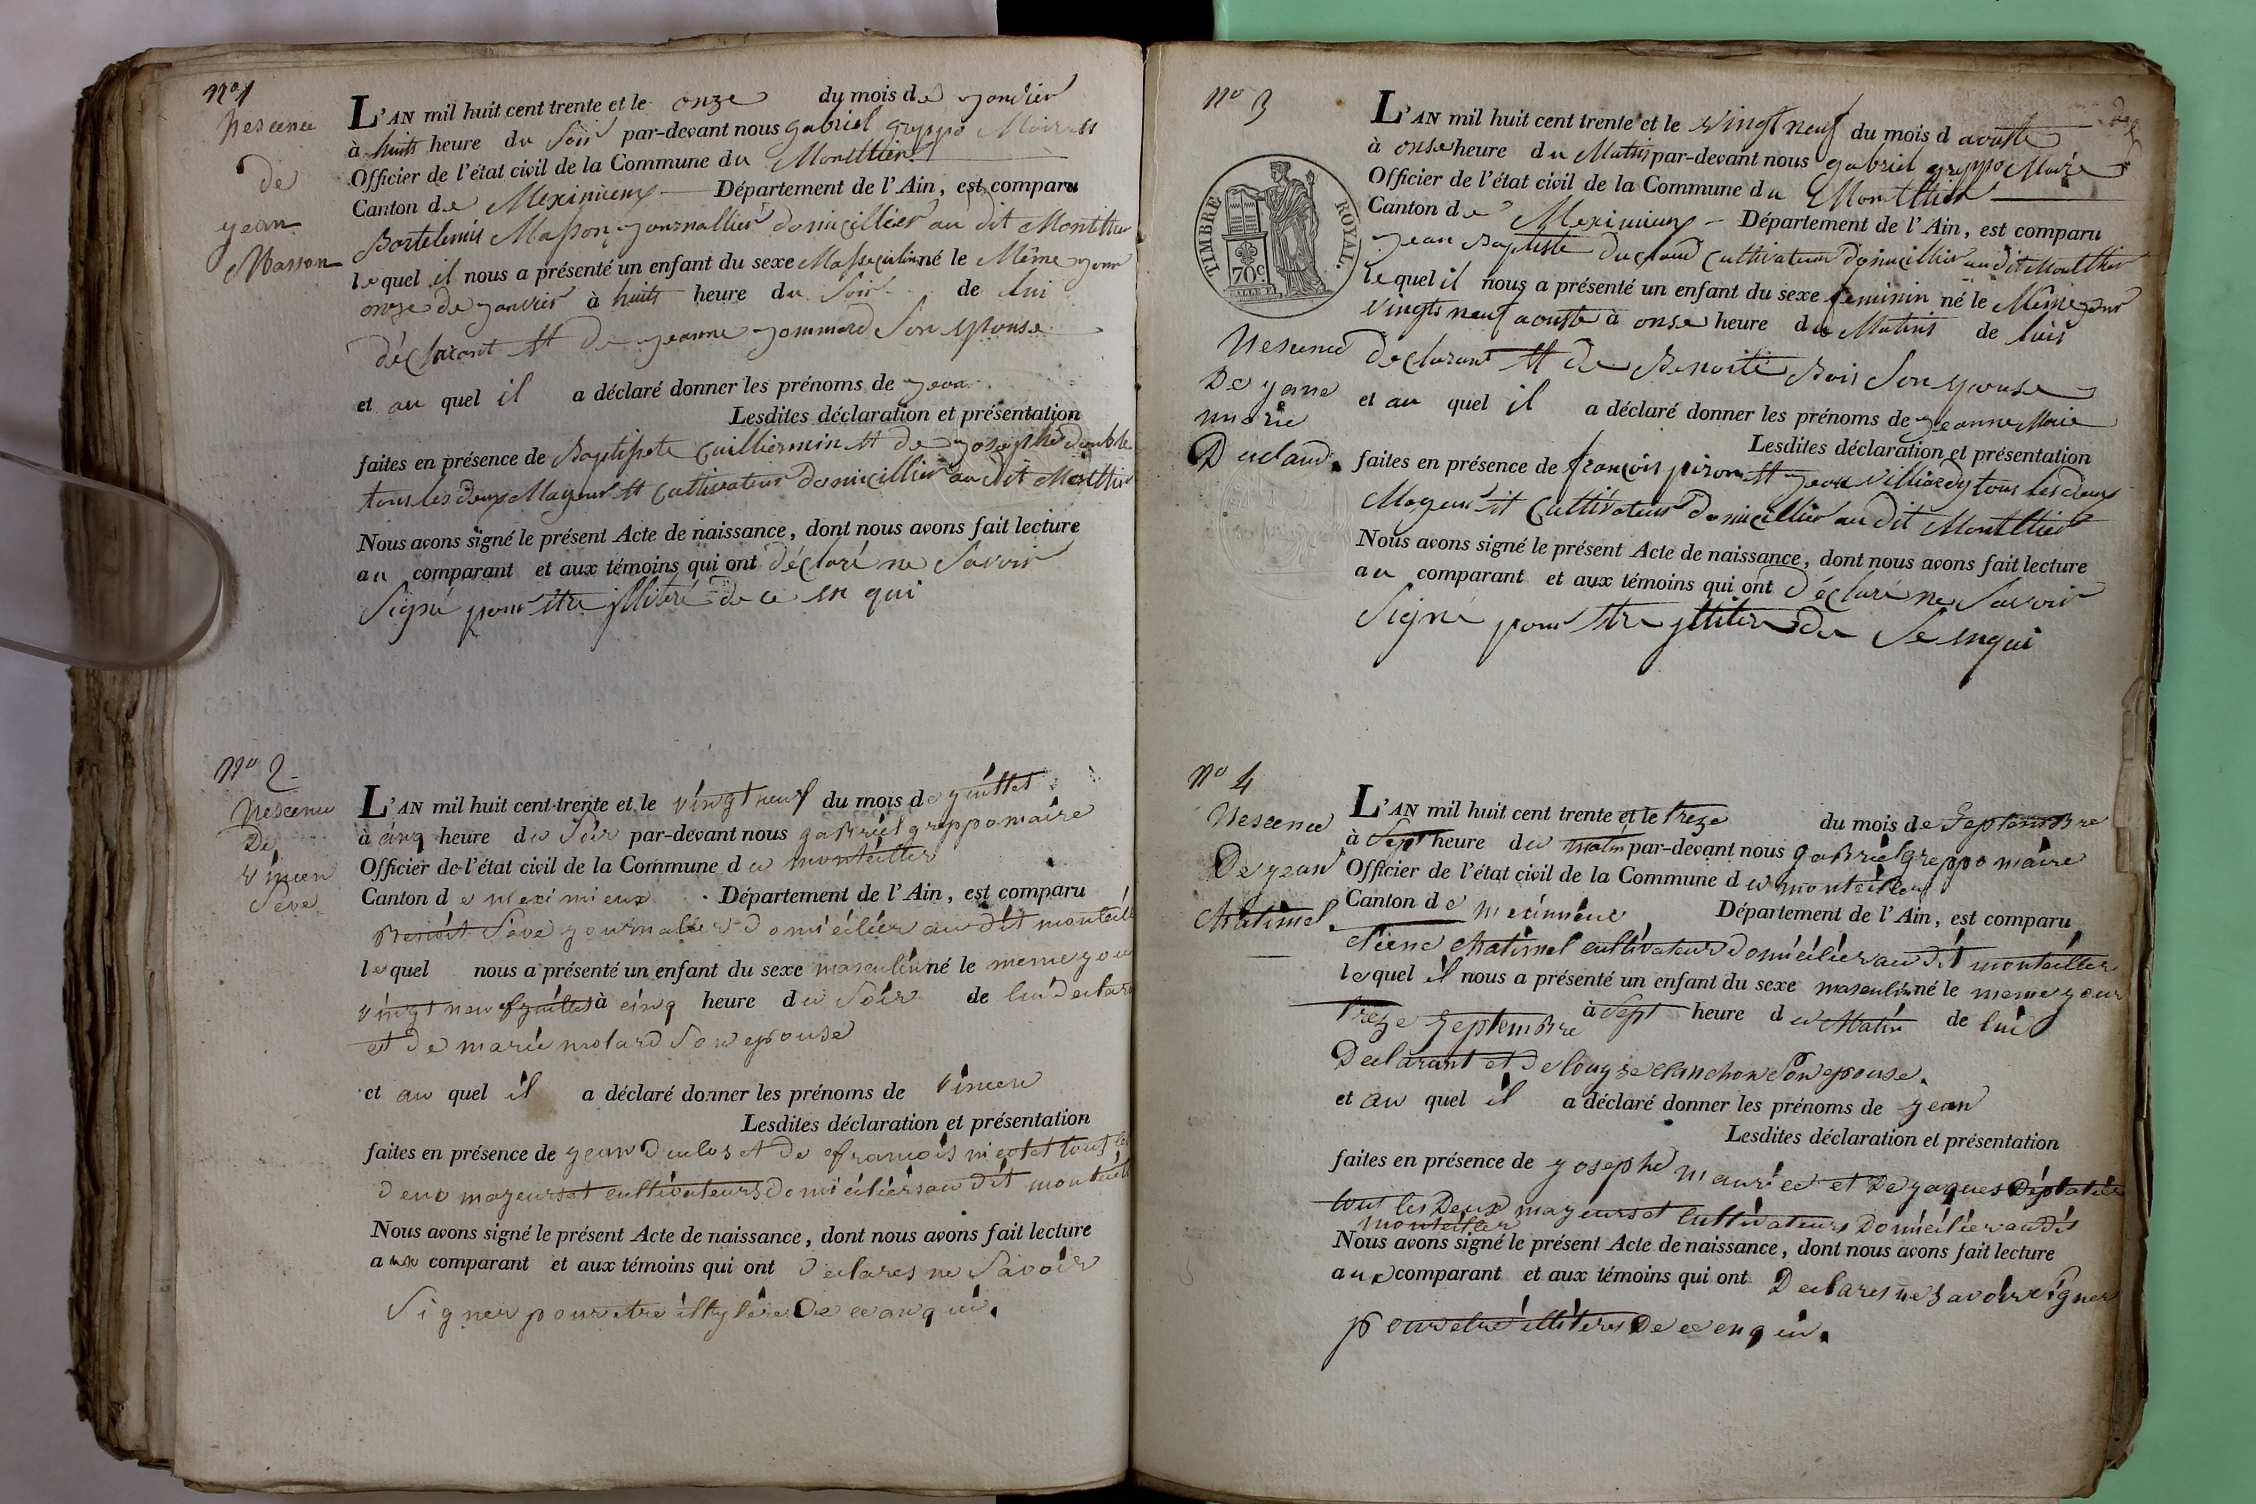 No 1
Nescence
de
jean
Masson
L'AN mil huit cent trente et le onze du mois de janvier
à huits heure du Soir par-devant nous gabriel greppo Maire et
Officier de l'état civil de la Commune du Montllier
Canton de Meximieux Département de l'Ain, est comparu
Bartelemis Masson journallier domicillier au dit Montllier
lequel il nous a présenté un enfant du sexe Massculin né le Même jour
onze de janvier à huits heure du Soir de lui
déclarant et de jeanne jommard Son epouse
et au quel il a déclaré donner les prénoms de jean
Lesdites déclaration et présentation
faites en présence de Baptisste Cuilliermin et de josephe
tous les deux Mageur et Cultivateur Domicillier au dit Montllier
Nous avons signé le présent Acte de naissance, dont nous avons fait lecture
au comparant et aux témoins qui ont déclaré ne Savoir
Signé pour etre jlliteré de ce en qui
No 2
Nescence
De
vincen
Seve
L'AN mil huit cent trente et le vingt neuf du mois de juillet
à cinq heure du Soir par-devant nous gabriel greppo maire
Officier de l'état civil de la Commune du monteillier
Canton de meximieux Département de l'Ain, est comparu
Benoit Seve journalier domicilier au dit monteill
lequel nous a présenté un enfant du sexe masculin né le meme jour
vingt neuf juillet à cinq heure du Soir de lui declara
et de marie molard Son epouse
et au quel il a déclaré donner les prénoms de vincen
Lesdites déclaration et présentation
faites en présence de jean Duclos et de francois tout les
deux mageurs et cultivateurs domiciliers au dit monteill
Nous avons signé le présent Acte de naissance, dont nous avons fait lecture
aux comparant et aux témoins qui ont declares ne Savoir
Signer pour etre de ce anqui.
No 3
TIMBRE ROYAL.
70c.
Nescence
De jane
marie
Duclaud.
L'AN mil huit cent trente et le vingt neuf du mois d aouste
à onse heure du Matin par-devant nous gabriel greppo Maire
Officier de l'état civil de la Commune du Montllier
Canton de Meximieux Département de l'Ain, est comparu
jean Baptiste Duclaud Cultivateur domicillier au dit Montllier
lequel il nous a présenté un enfant du sexe feminin né le Même jour
vingts neuf aouste à onse heure du Matins de luis
declarant et de Benoite Bois Son epouse
et au quel il a déclaré donner les prénoms de jeanne Marie
Lesdites déclaration et présentation
faites en présence de françois piron et jean villiardy tous les deux
Mageur et Cultivateur domicillier au dit Montllier
Nous avons signé le présent Acte de naissance, dont nous avons fait lecture
au comparant et aux témoins qui ont déclaré ne Savoir
Signé pour etre jlliteré de Se enqui
No 4
Nescence
De jean
Chatimel.
L'AN mil huit cent trente et le treze du mois de Septembre
à Sept heure du matin par-devant nous gabriel greppo maire
Officier de l'état civil de la Commune du monteillier
Canton de meximieux Département de l'Ain, est comparu
etiene chatimel cultivateur domicilier au dit monteillier
lequel il nous a présenté un enfant du sexe masculin né le meme jour
treze Septembre à Sept heure du Matin de lui
Declarant et de louyse Son epouse.
et au quel il a déclaré donner les prénoms de jean
Lesdites déclaration et présentation
faites en présence de josephe maurice et de jaques
tout les Deux mageurs et Cultivateurs Domicilier au dis
monteiller
Nous avons signé le présent Acte de naissance, dont nous avons fait lecture
aux comparant et aux témoins qui ont Declares ne Savoir Signer
pour etre illiteres De ce enqui.